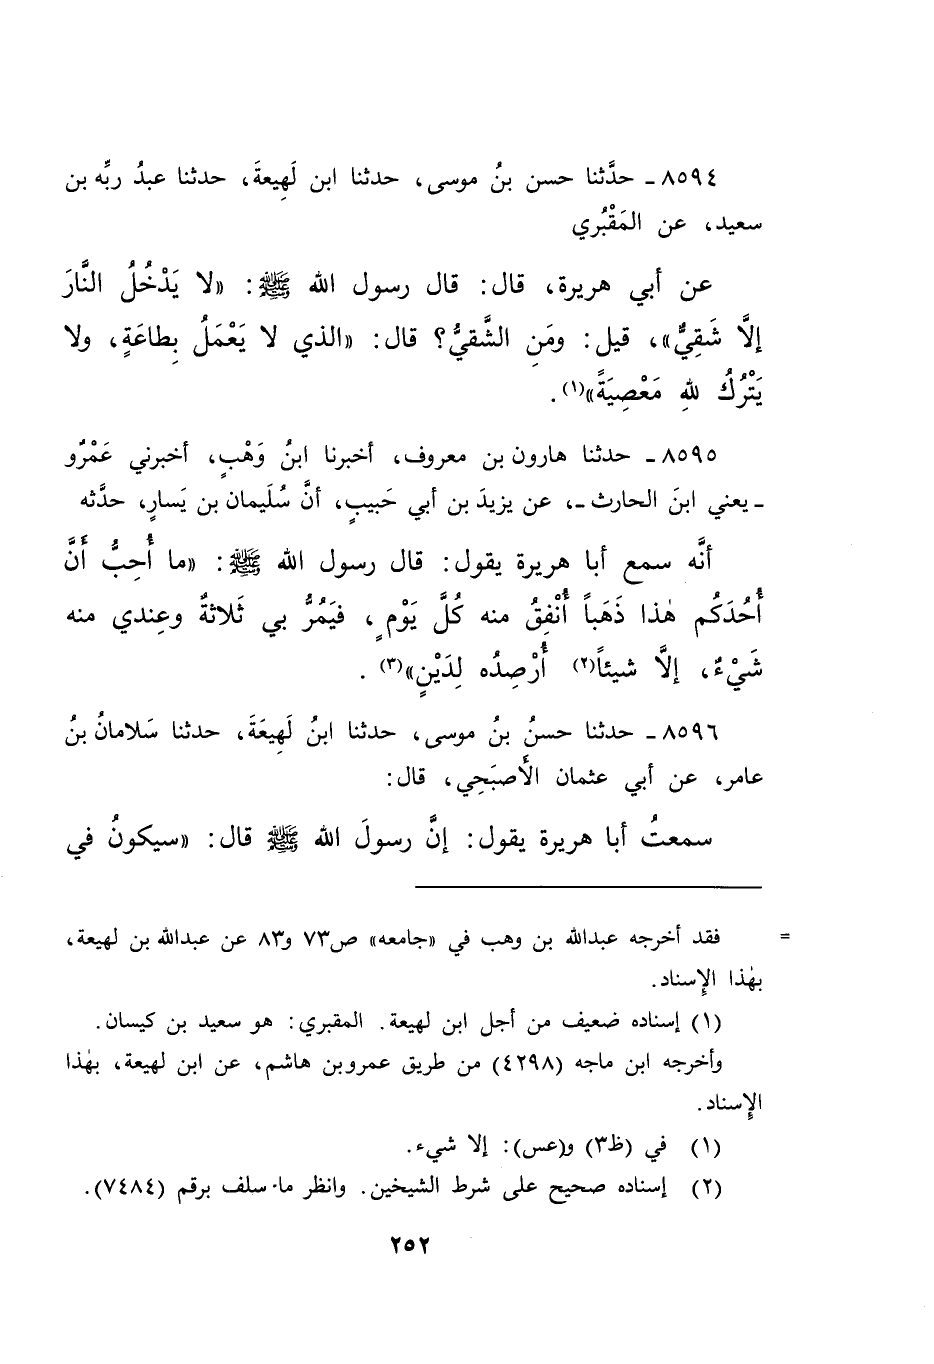 ٨٥٩٤ ـ حدَّثنا حسن بنُ موسى، حدثنا ابن لَهِيعةَ، حدثنا عبدُ ربِّه بن
سعيد، عن المَقْبُري
عن أبي هريرة، قال: قال رسول الله ﷺ: «لا يَدْخُلُ النَّارَ
إلَّا شَقِيٌّ»، قيل: ومَنِ الشَّقيُّ؟ قال: «الذي لا يَعْمَلُ بِطاعَةٍ، ولا
يَتْرُكُ للهِ مَعْصِيَةً»(١).
٨٥٩٥ ـ حدثنا هارون بن معروف، أخبرنا ابنُ وَهْبٍ، أخبرني عَمْرٌو
ـ يعني ابنَ الحارث ـ، عن يزيدَ بن أبي حَبيبٍ، أنَّ سُلَيمان بن يَسارٍ، حدَّثه
أنَّه سمع أبا هريرة يقول: قال رسول الله ﷺ: «ما أُحِبُّ أَنَّ
أُحُدَكُم هٰذا ذَهَباً أُنْفِقُ منه كُلَّ يَوْمٍ، فيَمُرُّ بي ثَلاثةٌ وعِندي منه
شَيْءٌ، إلَّا شيئاً(٢) أُرْصِدُه لِدَيْنٍ»(٣).
٨٥٩٦ ـ حدثنا حسنُ بنُ موسى، حدثنا ابنُ لَهِيعَةَ، حدثنا سَلامانُ بنُ
عامر، عن أبي عثمان الأَصبَحِي، قال:
سمعتُ أبا هريرة يقول: إنَّ رسولَ الله ﷺ قال: «سيكونُ في
= فقد أخرجه عبدالله بن وهب في «جامعه» ص٧٣ و٨٣ عن عبدالله بن لهيعة،
بهٰذا الإِسناد.
(١) إسناده ضعيف من أجل ابن لهيعة. المقبري: هو سعيد بن كيسان.
وأخرجه ابن ماجه (٤٢٩٨) من طريق عمرو بن هاشم، عن ابن لهيعة، بهٰذا
الإِسناد.
(١) في (ظ٣) و(عس): إلا شيء.
(٢) إسناده صحيح على شرط الشيخين. وانظر ما سلف برقم (٧٤٨٤).
٢٥٢